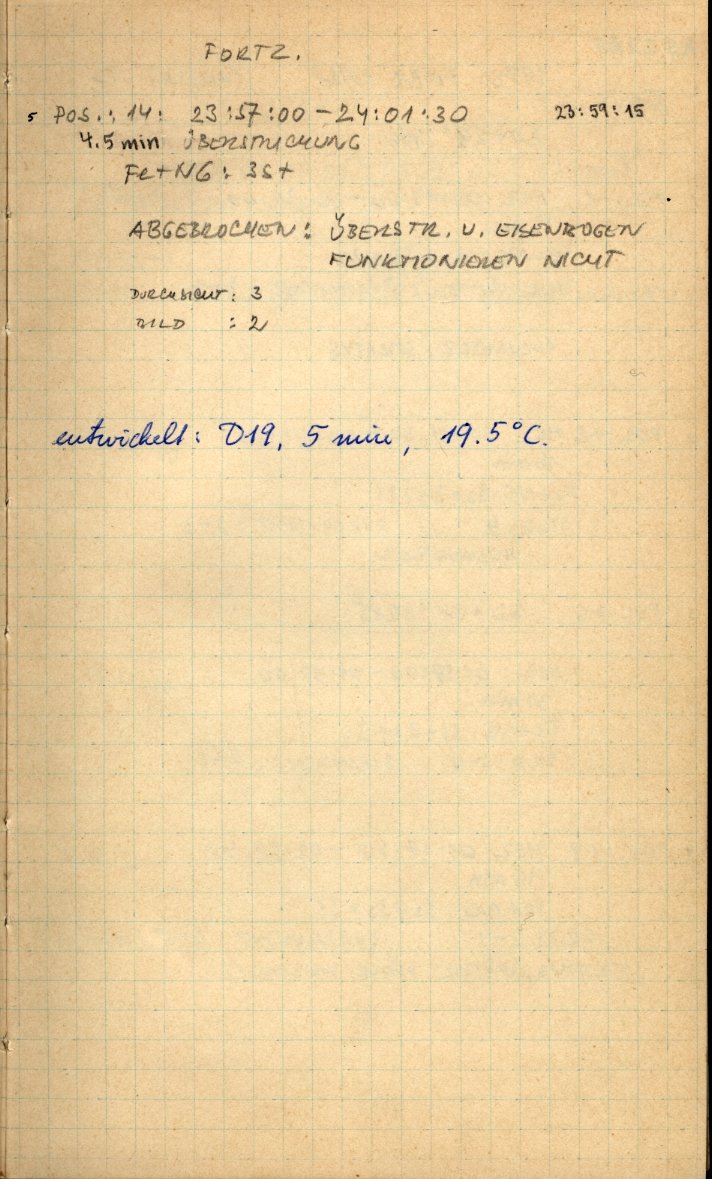 FORTZ.
5 POS.: 14: 23:57:00 – 24:01:30 23:59:15
4.5 min ÜBERSTREICHUNG
Fe+NG: 3s+
ABGEBROCHEN: ÜBERSTR. U. EISENBOGEN
FUNKTIONIEREN NICHT
DURCHSICHT: 3
BILD : 2
entwickelt: D19, 5 min, 19.5°C.